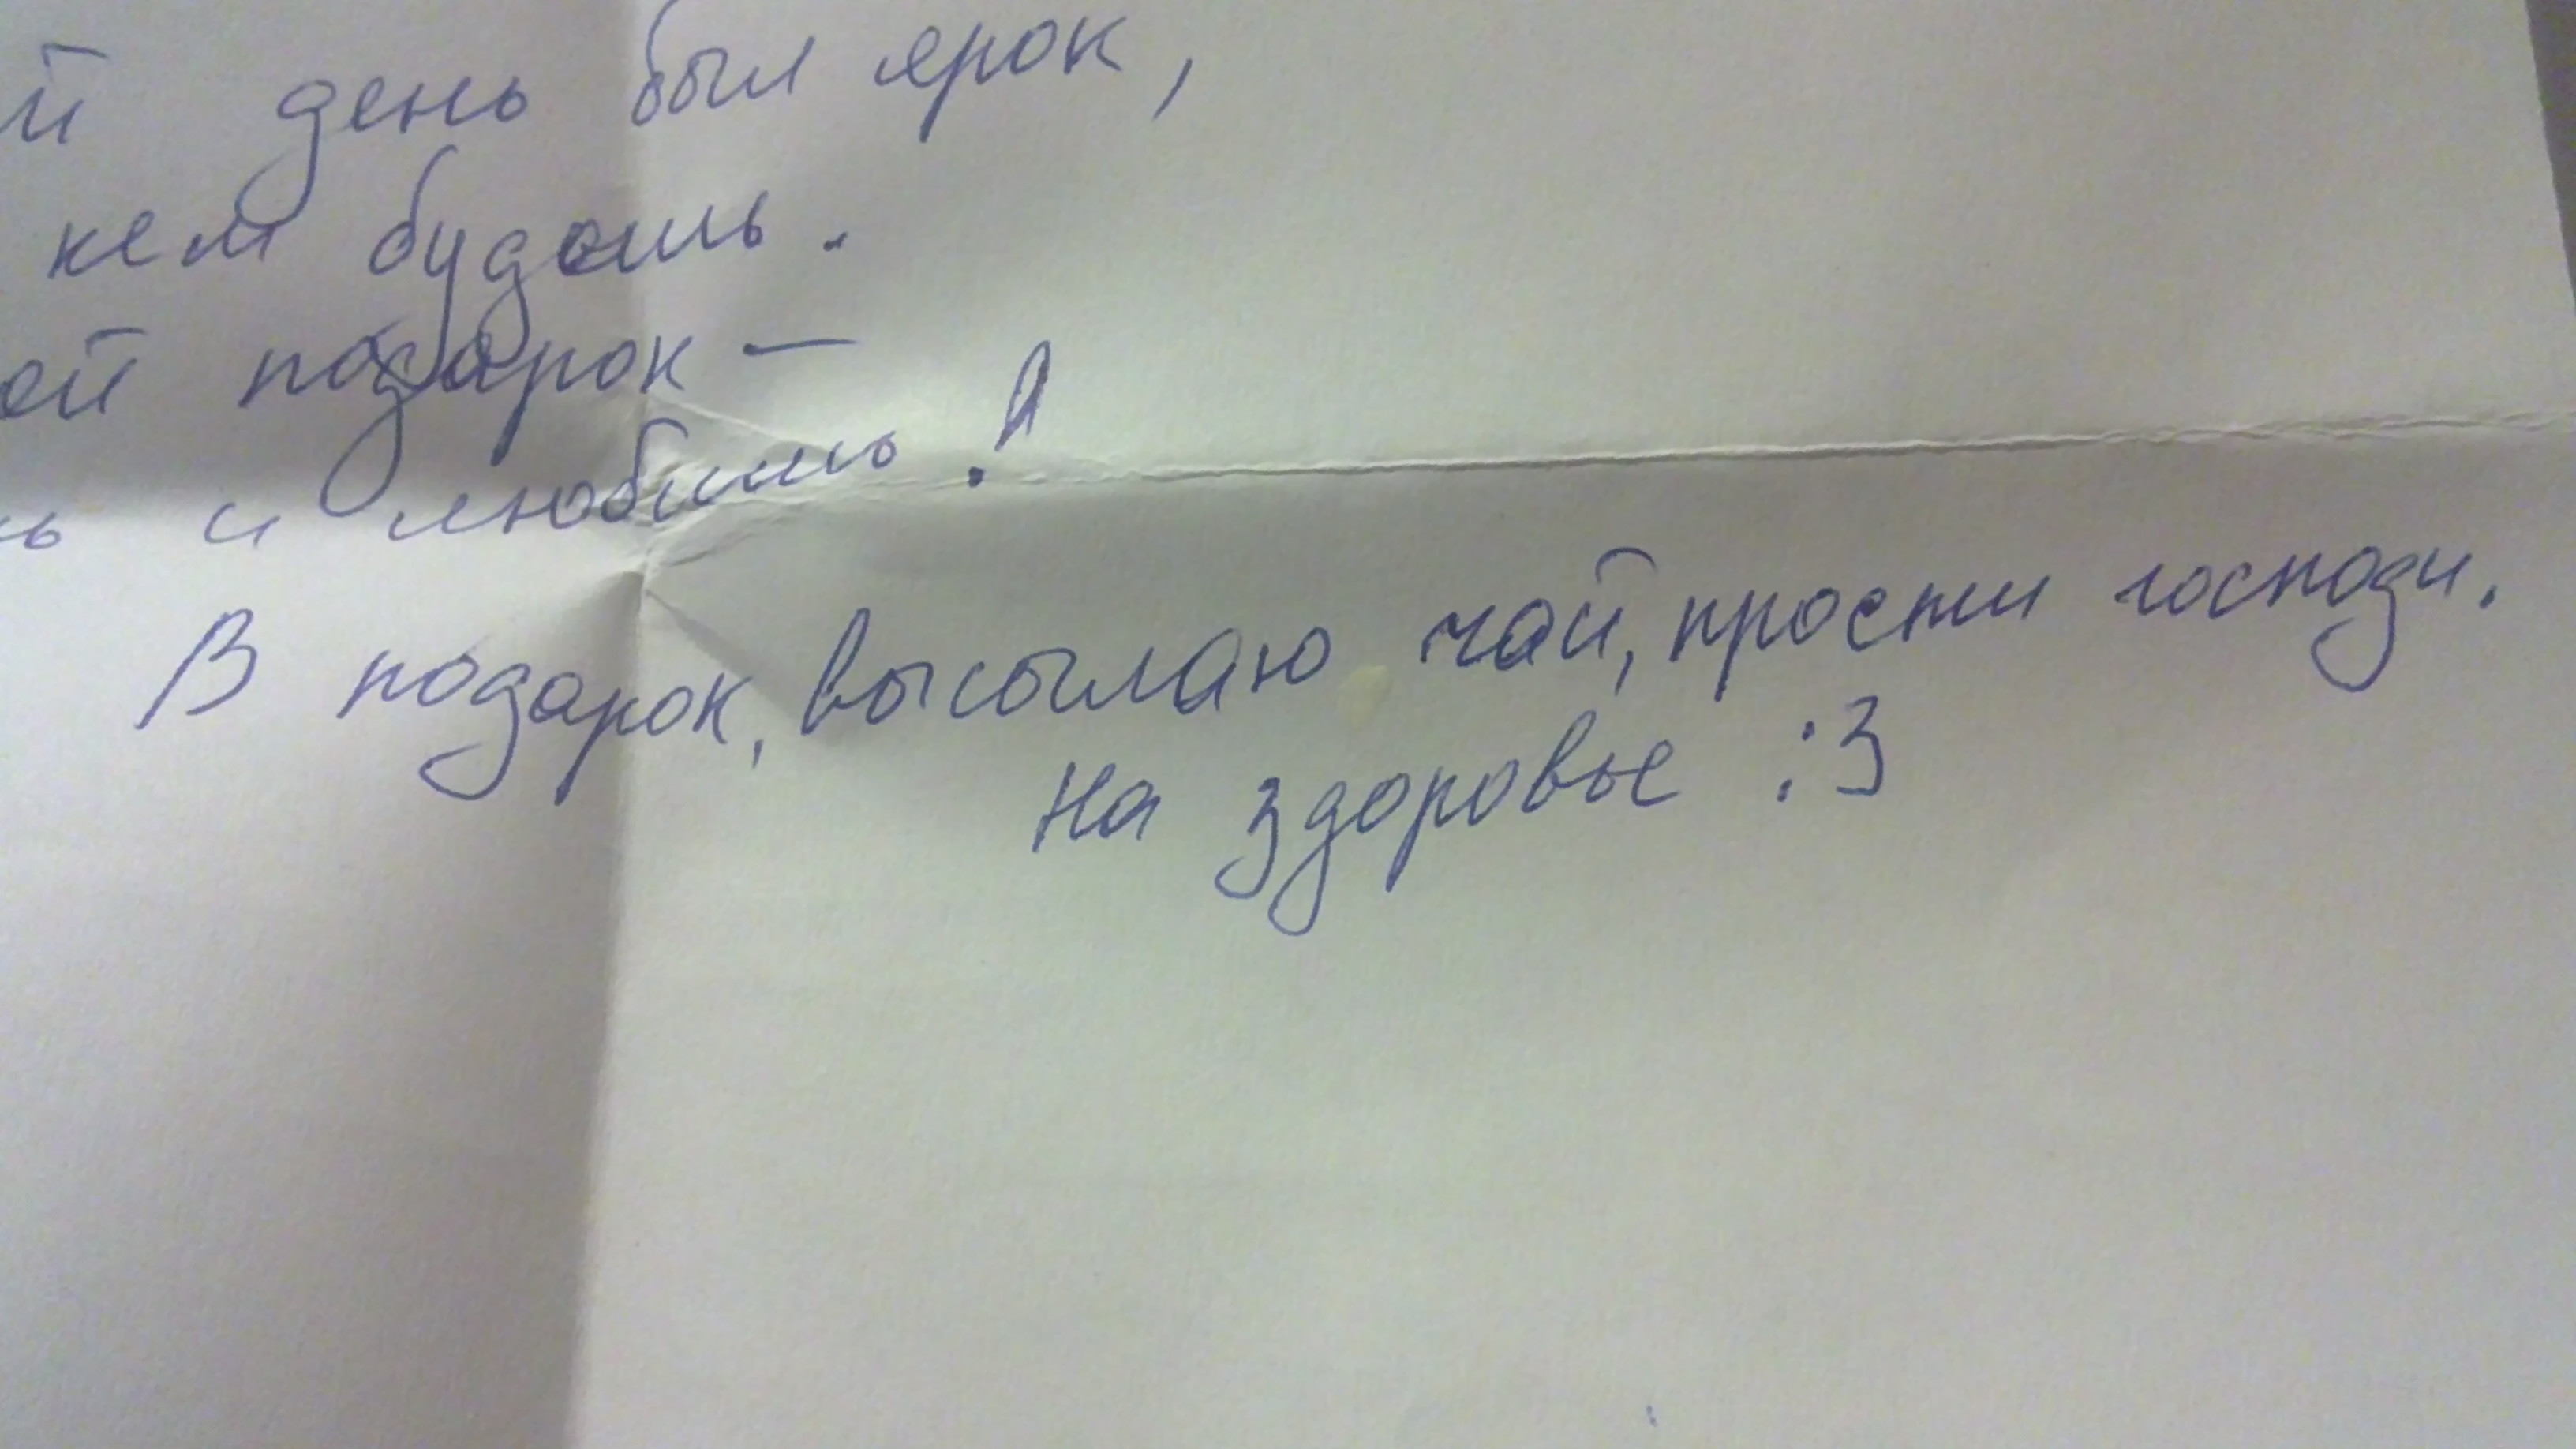 й день был ярок,
кем будешь.
ой подарок —
ь и любишь!
В подарок, высылаю чай, прости господи.
На здоровье :3